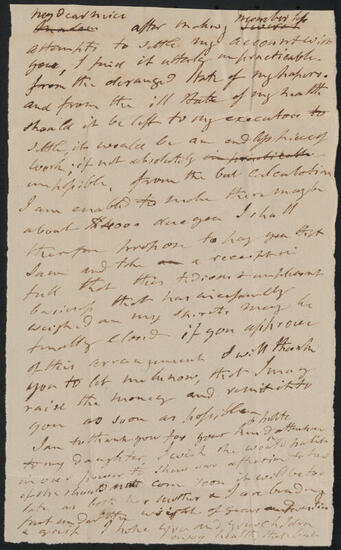 My dear niece
after making numberless
attempts to settle my account with
you, I find it utterly impracticable
from the deranged state of my papers.
and from the ill state of my health
should it be left to my executors to
settle, it would be an endless piece of
work, if not absolutely
impossible, from the best calculation
I am enabled to make there may be
about due you I shall
therefore propose to pay you that
sum and take a receipt in
full that this tedious & unpleasant
business that has incessantly
weighed on my spirits may be
finally closed if you approve
of this arrangement I will thank
you to let me know, that I may
raise the money and remit it to
you as soon as possible
I am to thank you for your kind attention
to my daughter, I wish she would put it
in our power to show our affection to her
if she should not come soon it will be too
late as both her mother & I are bending
fast under the weight of years
I hope you and your children
enjoy health